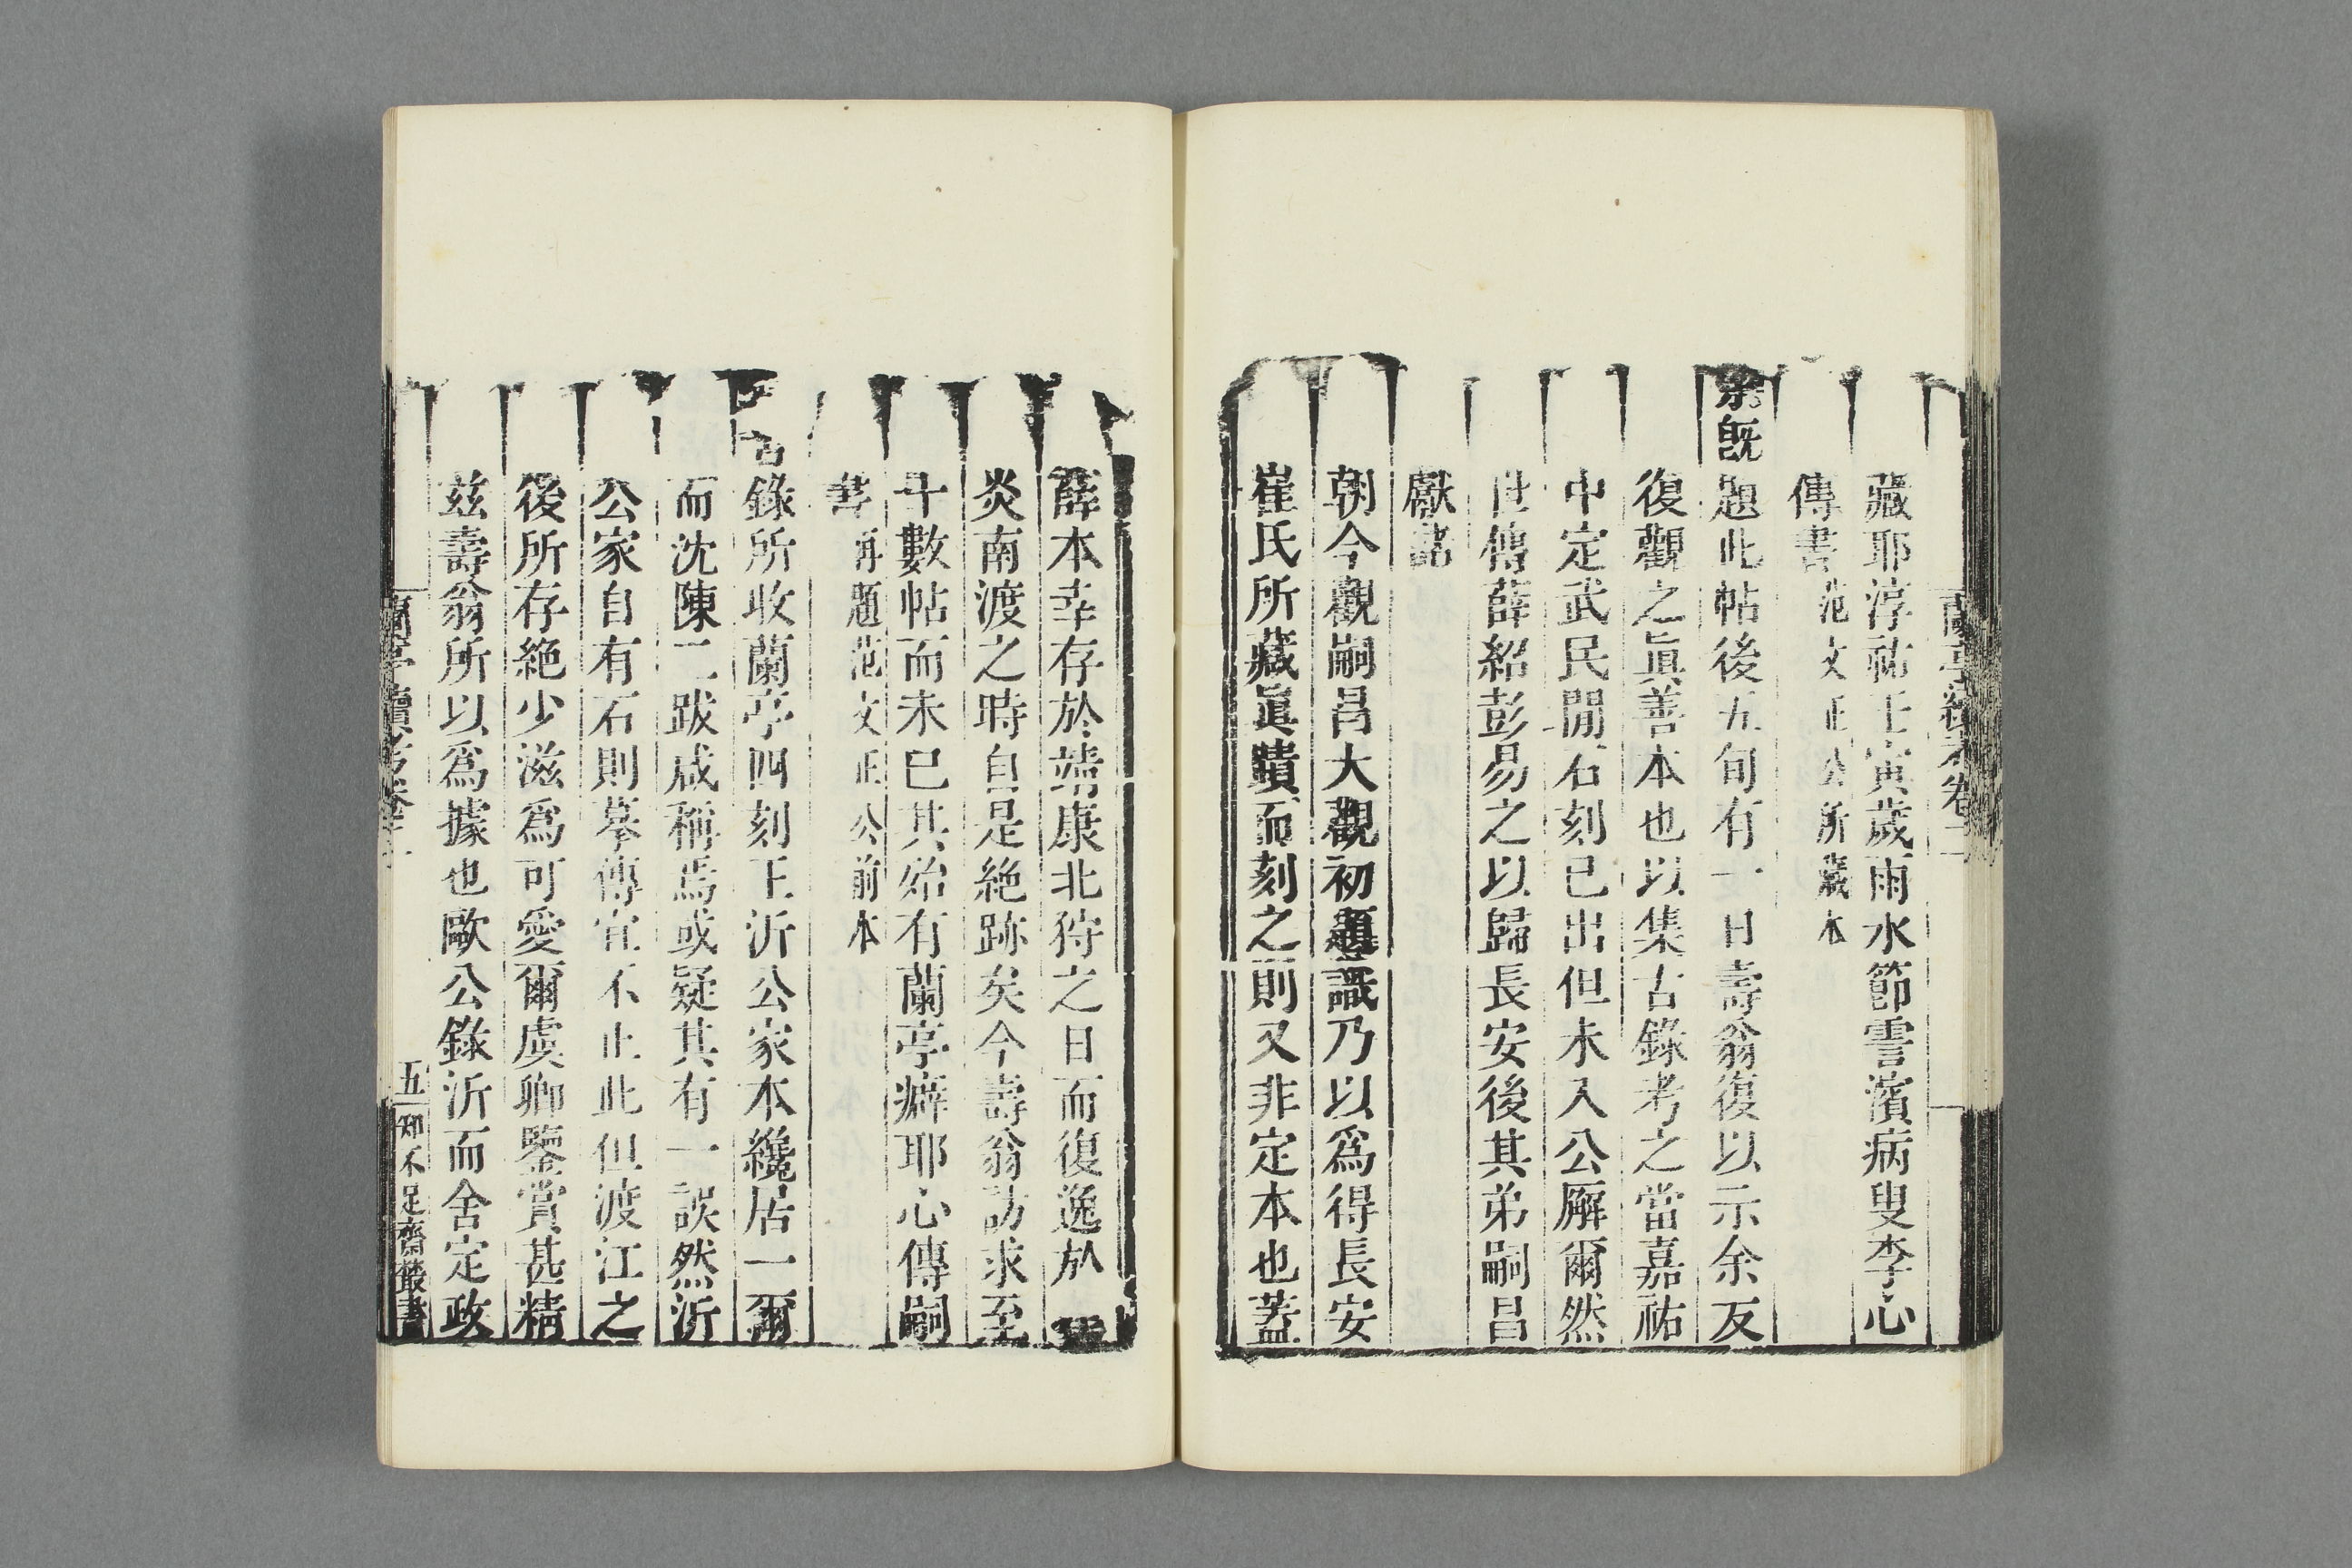 藏耶淳祐壬寅歲雨水節霅濱病叟李心
傳書范文正公所藏本
余旣題此帖後五旬有一日壽翁復以示余反
復觀之眞善本也以集古錄考之當嘉祐
中定武民閒石刻已出但未入公廨爾然
世傳薛紹彭易之以歸長安後其弟嗣昌
獻諸
朝今觀嗣昌大觀初題識乃以爲得長安
崔氏所藏眞蹟而刻之則又非定本也蓋
薛本幸存於靖康北狩之日而復逸於
炎南渡之時自是絶跡矣今壽翁訪求至
十數帖而未已其殆有蘭亭癖耶心傳嗣
書再題范文正公前本
古錄所收蘭亭四刻王沂公家本纔居一爾
而沈陳二跋咸稱焉或疑其有一誤然沂
公家自有石則摹傳宜不止此但渡江之
後所存絶少滋爲可愛爾虞卿鑒賞甚精
茲壽翁所以爲據也歐公錄沂而舍定政
蘭亭續考卷二
五
知不足齋叢書